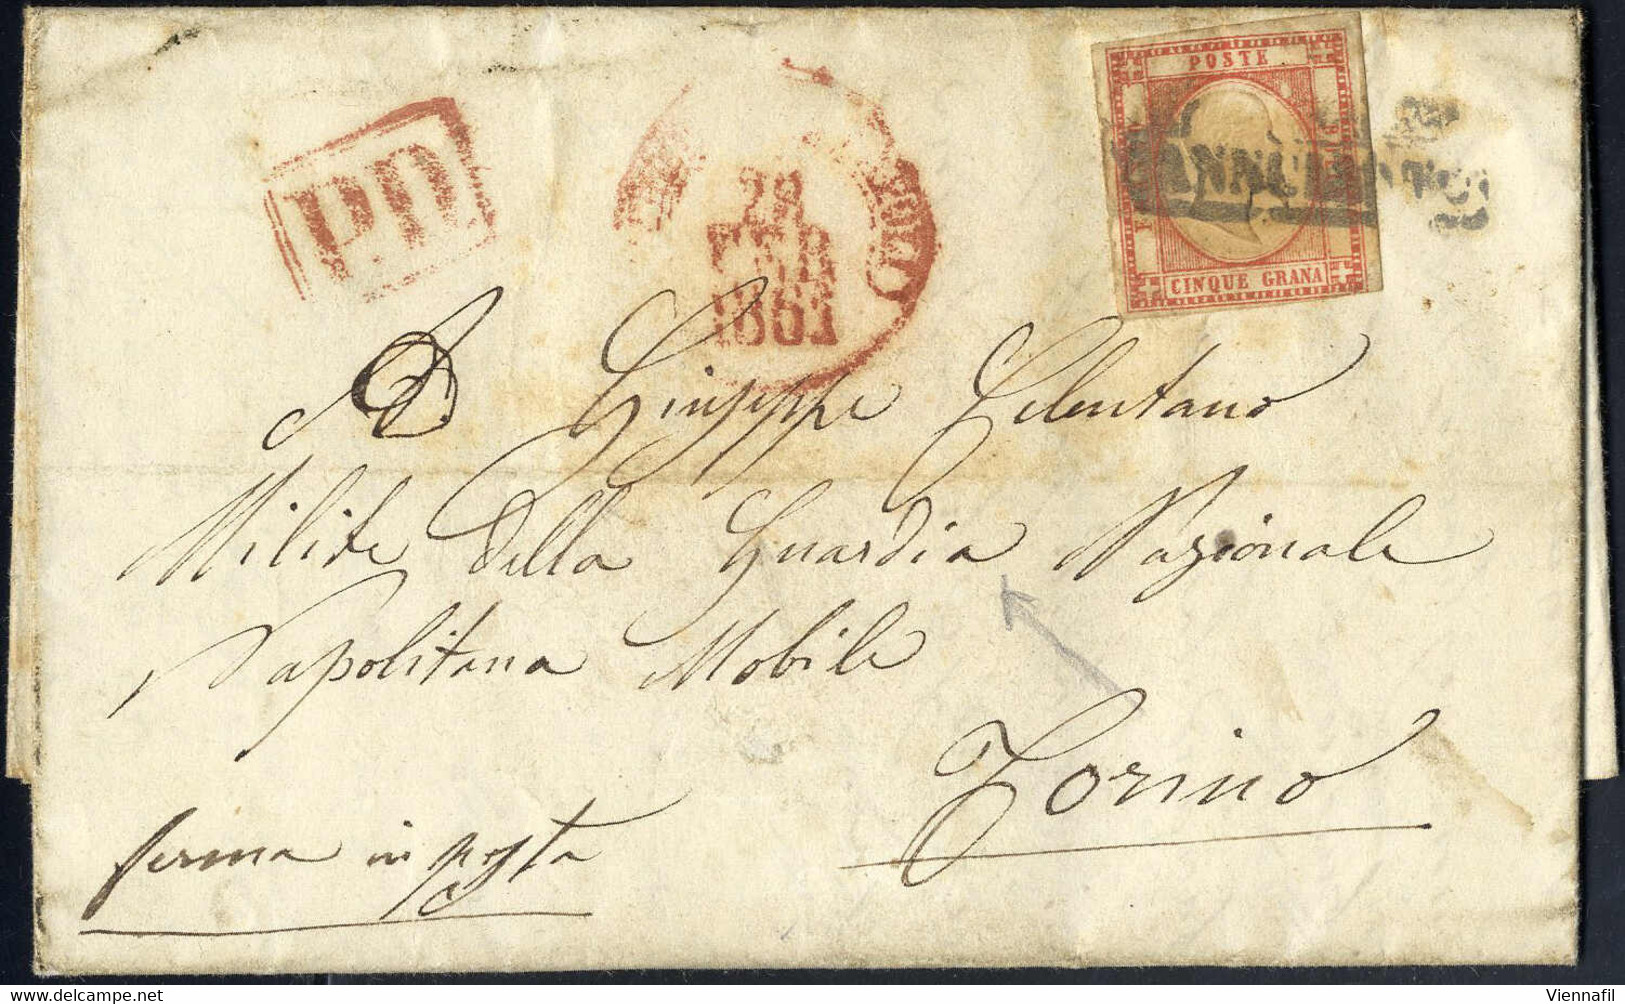 P.D.
28
FEB
1861
POSTE
ANNULLATO
CINQUE GRANA
A Giuseppe Celentano
Milite della Guardia Nazionale
Napolitana Mobile
Torino
ferma in posta
delcampe.net
Viennafil